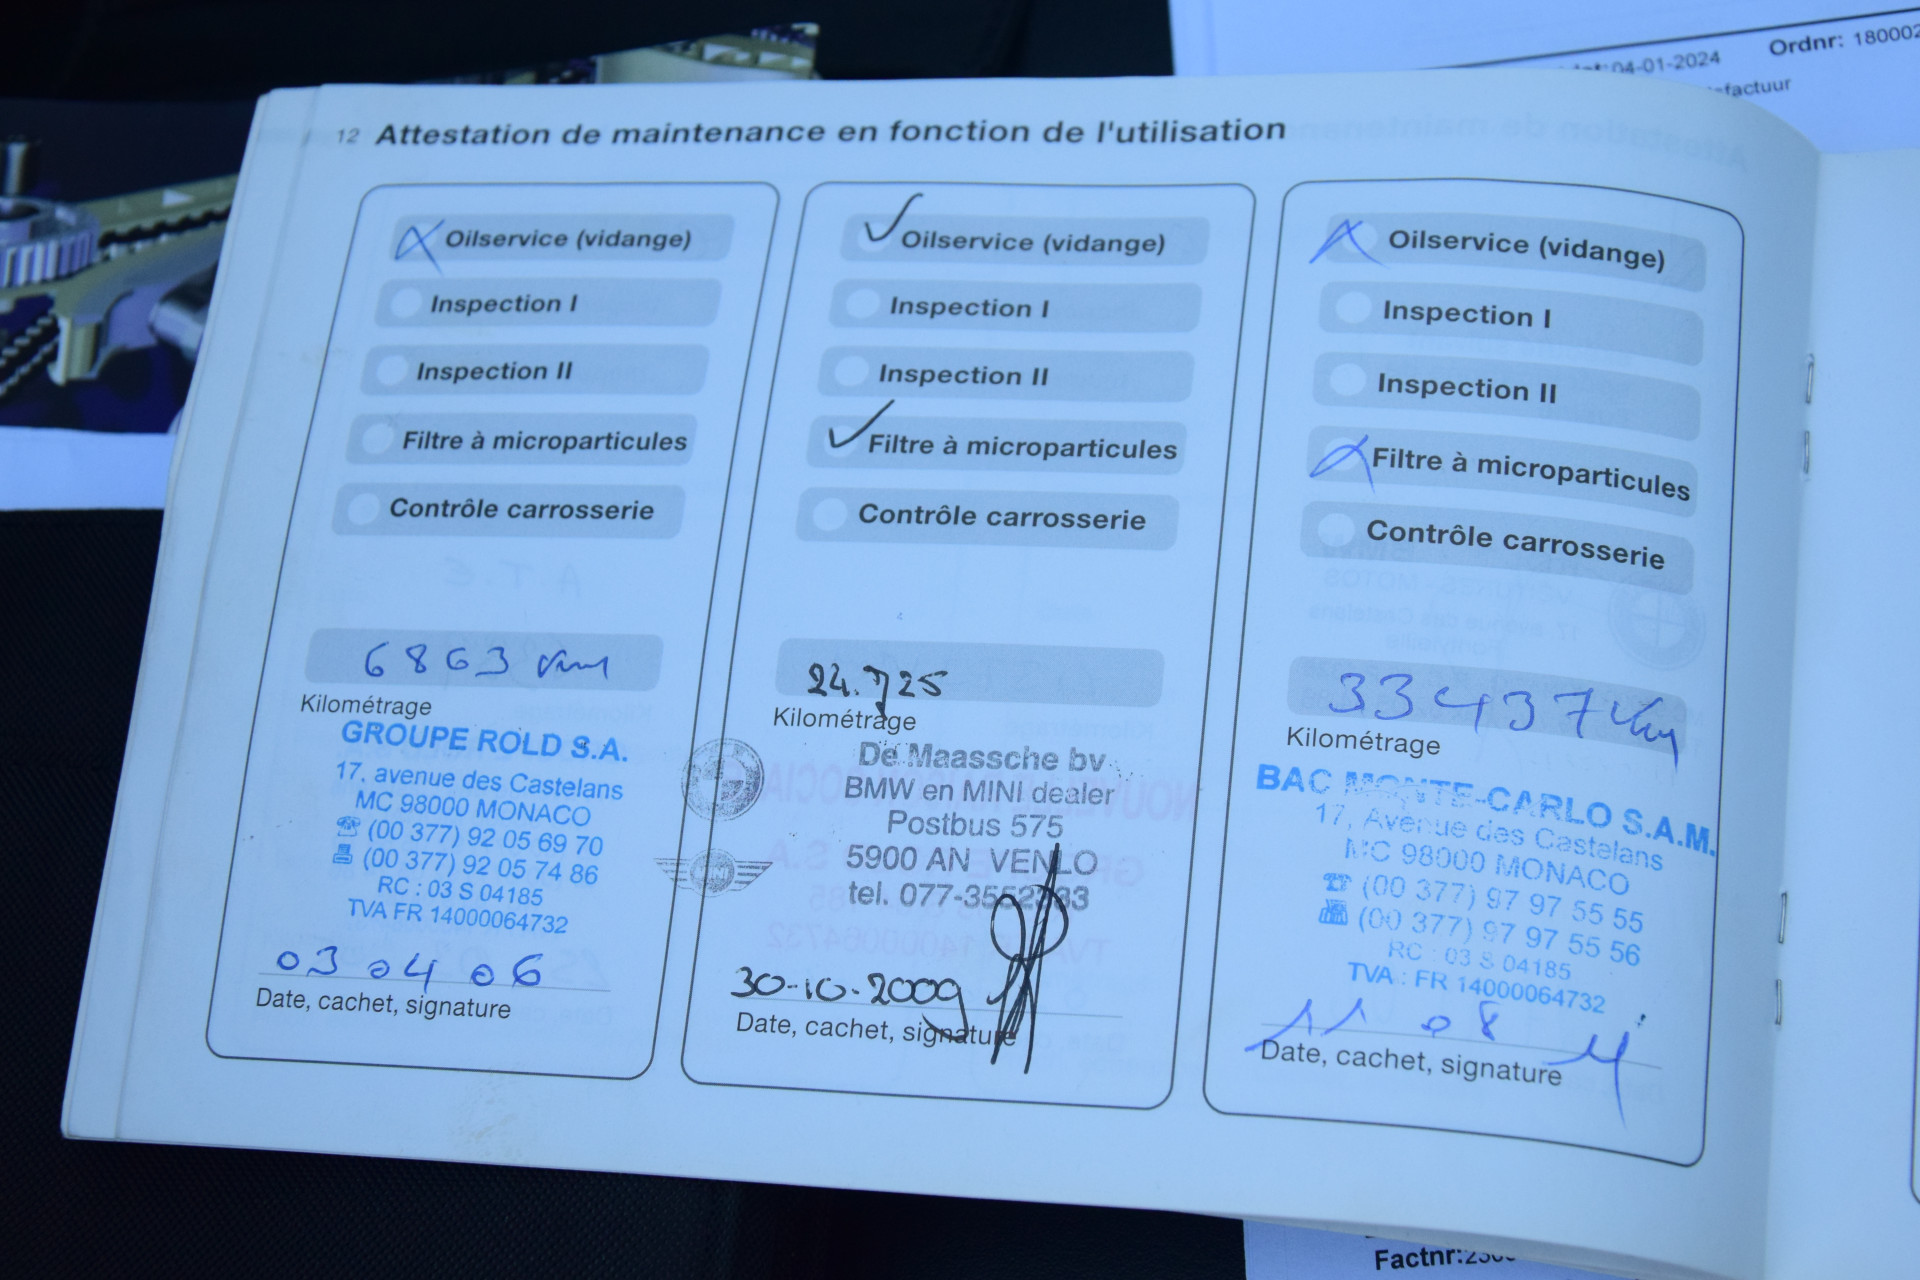 Ordnr: 180002
04-01-2024
factuur
12 Attestation de maintenance en fonction de l'utilisation
Oilservice (vidange)
Inspection I
Inspection II
Filtre à microparticules
Contrôle carrosserie
6863 km
Kilométrage
GROUPE ROLD S.A.
17, avenue des Castelans
MC 98000 MONACO
(00 377) 92 05 69 70
(00 377) 92 05 74 86
RC : 03 S 04185
TVA FR 14000064732
03 04 06
Date, cachet, signature
Oilservice (vidange)
Inspection I
Inspection II
Filtre à microparticules
Contrôle carrosserie
24.725
Kilométrage
De Maassche bv
BMW en MINI dealer
Postbus 575
5900 AN VENLO
tel. 077-3552333
30-10-2009
Date, cachet, signature
Oilservice (vidange)
Inspection I
Inspection II
Filtre à microparticules
Contrôle carrosserie
33437 km
Kilométrage
BAC MONTE-CARLO S.A.M.
17, Avenue des Castelans
MC 98000 MONACO
(00 377) 97 97 55 55
(00 377) 97 97 55 56
RC : 03 S 04185
TVA : FR 14000064732
11 08 11
Date, cachet, signature
Factnr: